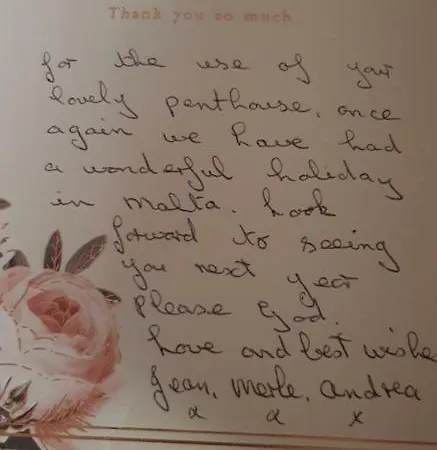 Thank you so much
for the use of your
lovely penthouse, once
again we have had
a wonderful holiday
in Malta. Look
forward to seeing
you next year
please God.
Love and best wishe
Jean, Merle, Andrea
x x x